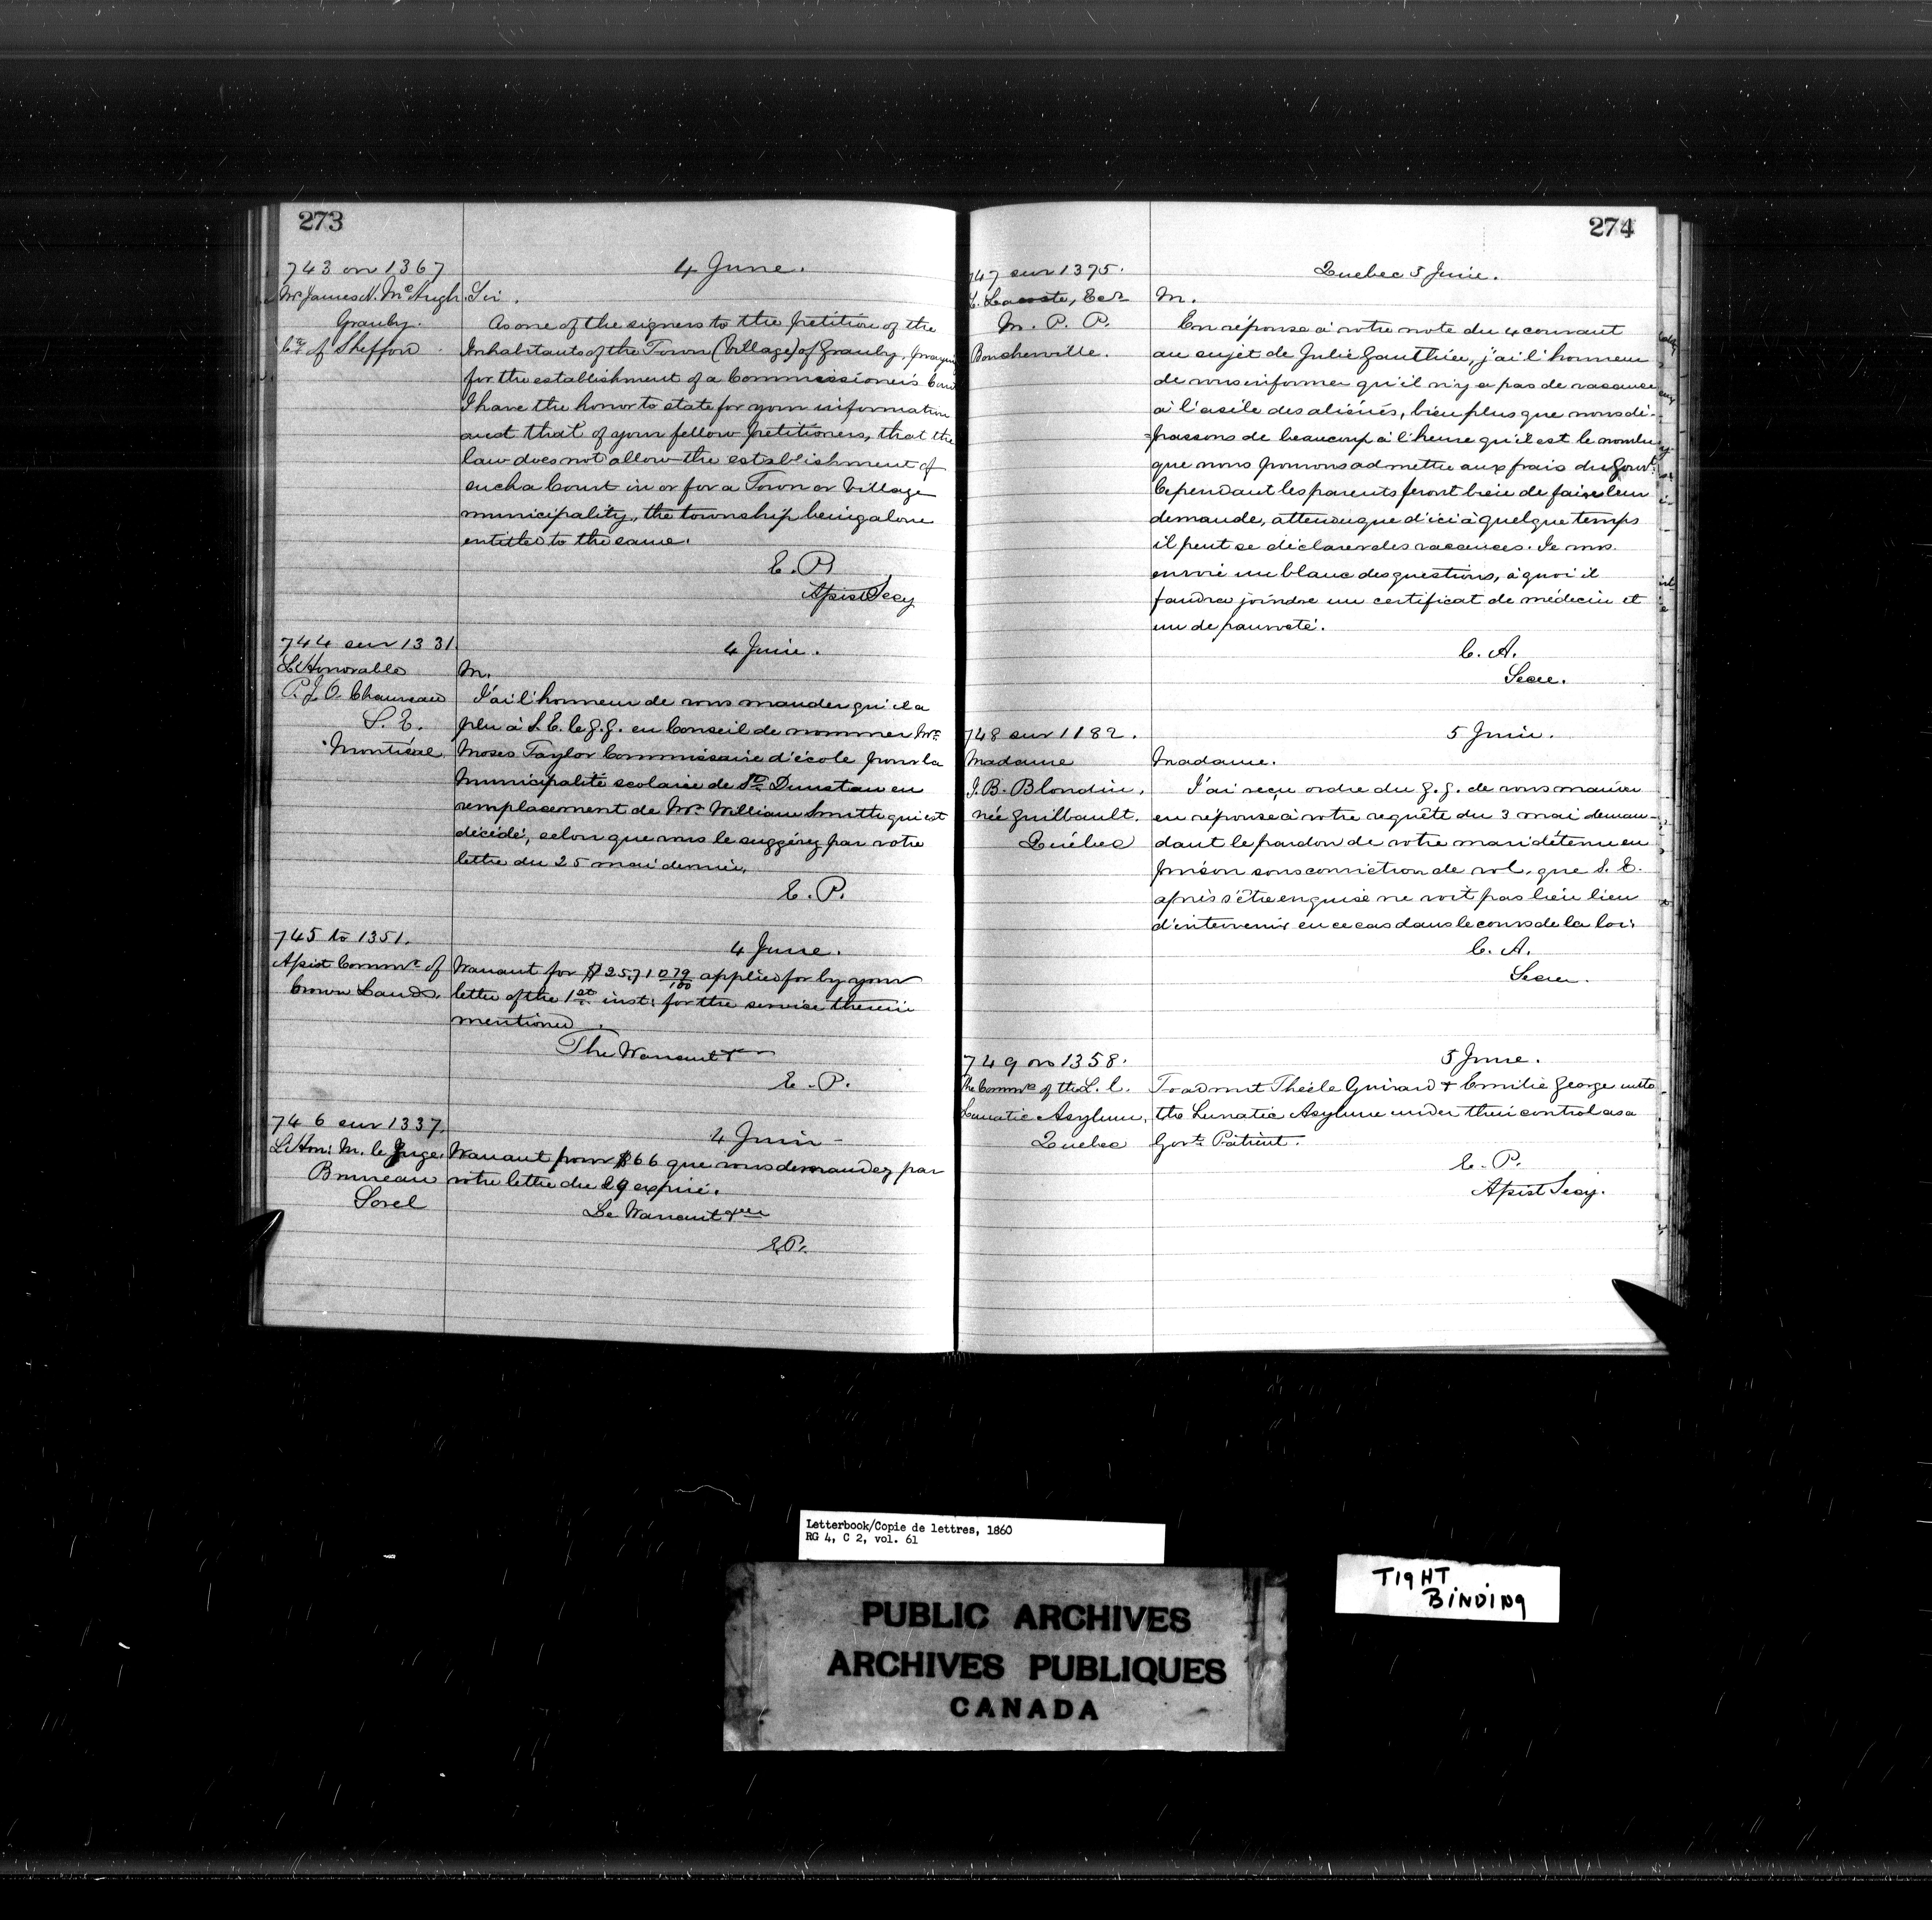 273
743 on 1367
Mr James N. McHugh
Granby.
Cty of Shefford.
4 June.
Sir.
As one of the signers to the petition of the
Inhabitants of the Town (Village) of Granby, praying
for the establishment of a Commissioner's Court
I have the honor to state for your information
and that of your fellow petitioners, that the
law does not allow the establishment of
such a Court in or for a Town or Village
municipality, the township being alone
entitled to the same.
E. P.
Assist Secy
744 sur 1331.
L'Honorable
P. J. O. Chauveau
S. E.
Montréal
4 Juin.
M.
J'ai l'honneur de vous mander qu'il a
plu à S. E. le G. G. en Conseil de nommer Mr.
Moses Taylor Commissaire d'école pour la
Municipalité scolaire de St. Dunstan en
remplacement de Mr. William Smith qui est
décédé, selon que vous le suggérez par votre
lettre du 25 mai dernier.
E. P.
745 to 1351.
Assist Commr. of
Crown Lands.
4 June.
Warrant for $ 25,710 79/100 applied for by your
letter of the 1st inst: for the service therein
mentioned.
The Warrant &
E. P.
746 sur 1337.
L'Hon: M. le Juge.
Bruneau
Sorel
4 Juin -
Warrant pour $66 que vous demandez par
votre lettre du 29 expiré.
Le Warrant &
E. P.
274
747 sur 1375.
L. Lacoste, Ecr
M. P. P.
Boucherville.
Quebec 5 Juin.
M.
En réponse à votre note du 4 courant
au sujet de Julie Gauthier, j'ai l'honneur
de vous informer qu'il n'y a pas de vacance
à l'asile des aliénés, bien plus que nous dé-
=passons de beaucoup à l'heure qu'il est le nombre
que nous pouvons admettre aux frais du Gouvt.
Cependant les parents feront bien de faire leur
demande, attendu que d'ici à quelque temps
il peut se déclarer des vacances. Je vous
envoie un blanc des questions, à quoi il
faudra joindre un certificat de médecin et
un de pauvreté.
C. A.
Secre.
748 sur 1182.
Madame
J. B. Blondin,
née Guilbault.
Québec
5 Juin.
Madame.
J'ai reçu ordre du G. G. de vous mander
en réponse à votre requête du 3 mai deman-
dant le pardon de votre mari détenu en
prison sous conviction de vol, que S. E.
après s'être enquisé ne voit pas lieu lieu
d'intervenir en ce cas dans le cours de la loi.
C. A.
Secre.
749 on 1358.
The Commrs of the L. C.
Lunatic Asylum.
Quebec
5 June.
To admit Guirard & Emilie George into
the Lunatic Asylum under their control as a
Govt. Patient.
E. P.
Assist Secy.
Letterbook/Copie de lettres, 1860
RG 4, C 2, vol. 61
PUBLIC ARCHIVES
ARCHIVES PUBLIQUES
CANADA
TIGHT
BINDING